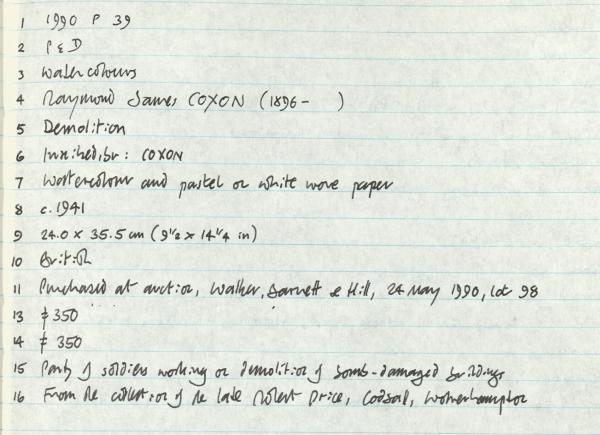 1 1990 P 39
2 P & D
3 Watercolours
4 Raymond James COXON (1896- )
5 Demolition
6 Inscribed, br: COXON
7 Watercolour and pastel on white wove paper
8 c. 1941
9 24.0 x 35.5 cm (9 1/2 x 14 1/4 in)
10 British
11 Purchased at auction, Walker, Barnett & Hill, 24 May 1990, lot 98
13 £350
14 £350
15 Party of soldiers working on demolition of bomb-damaged buildings
16 From the collection of the late Robert Price, Codsall, Wolverhampton